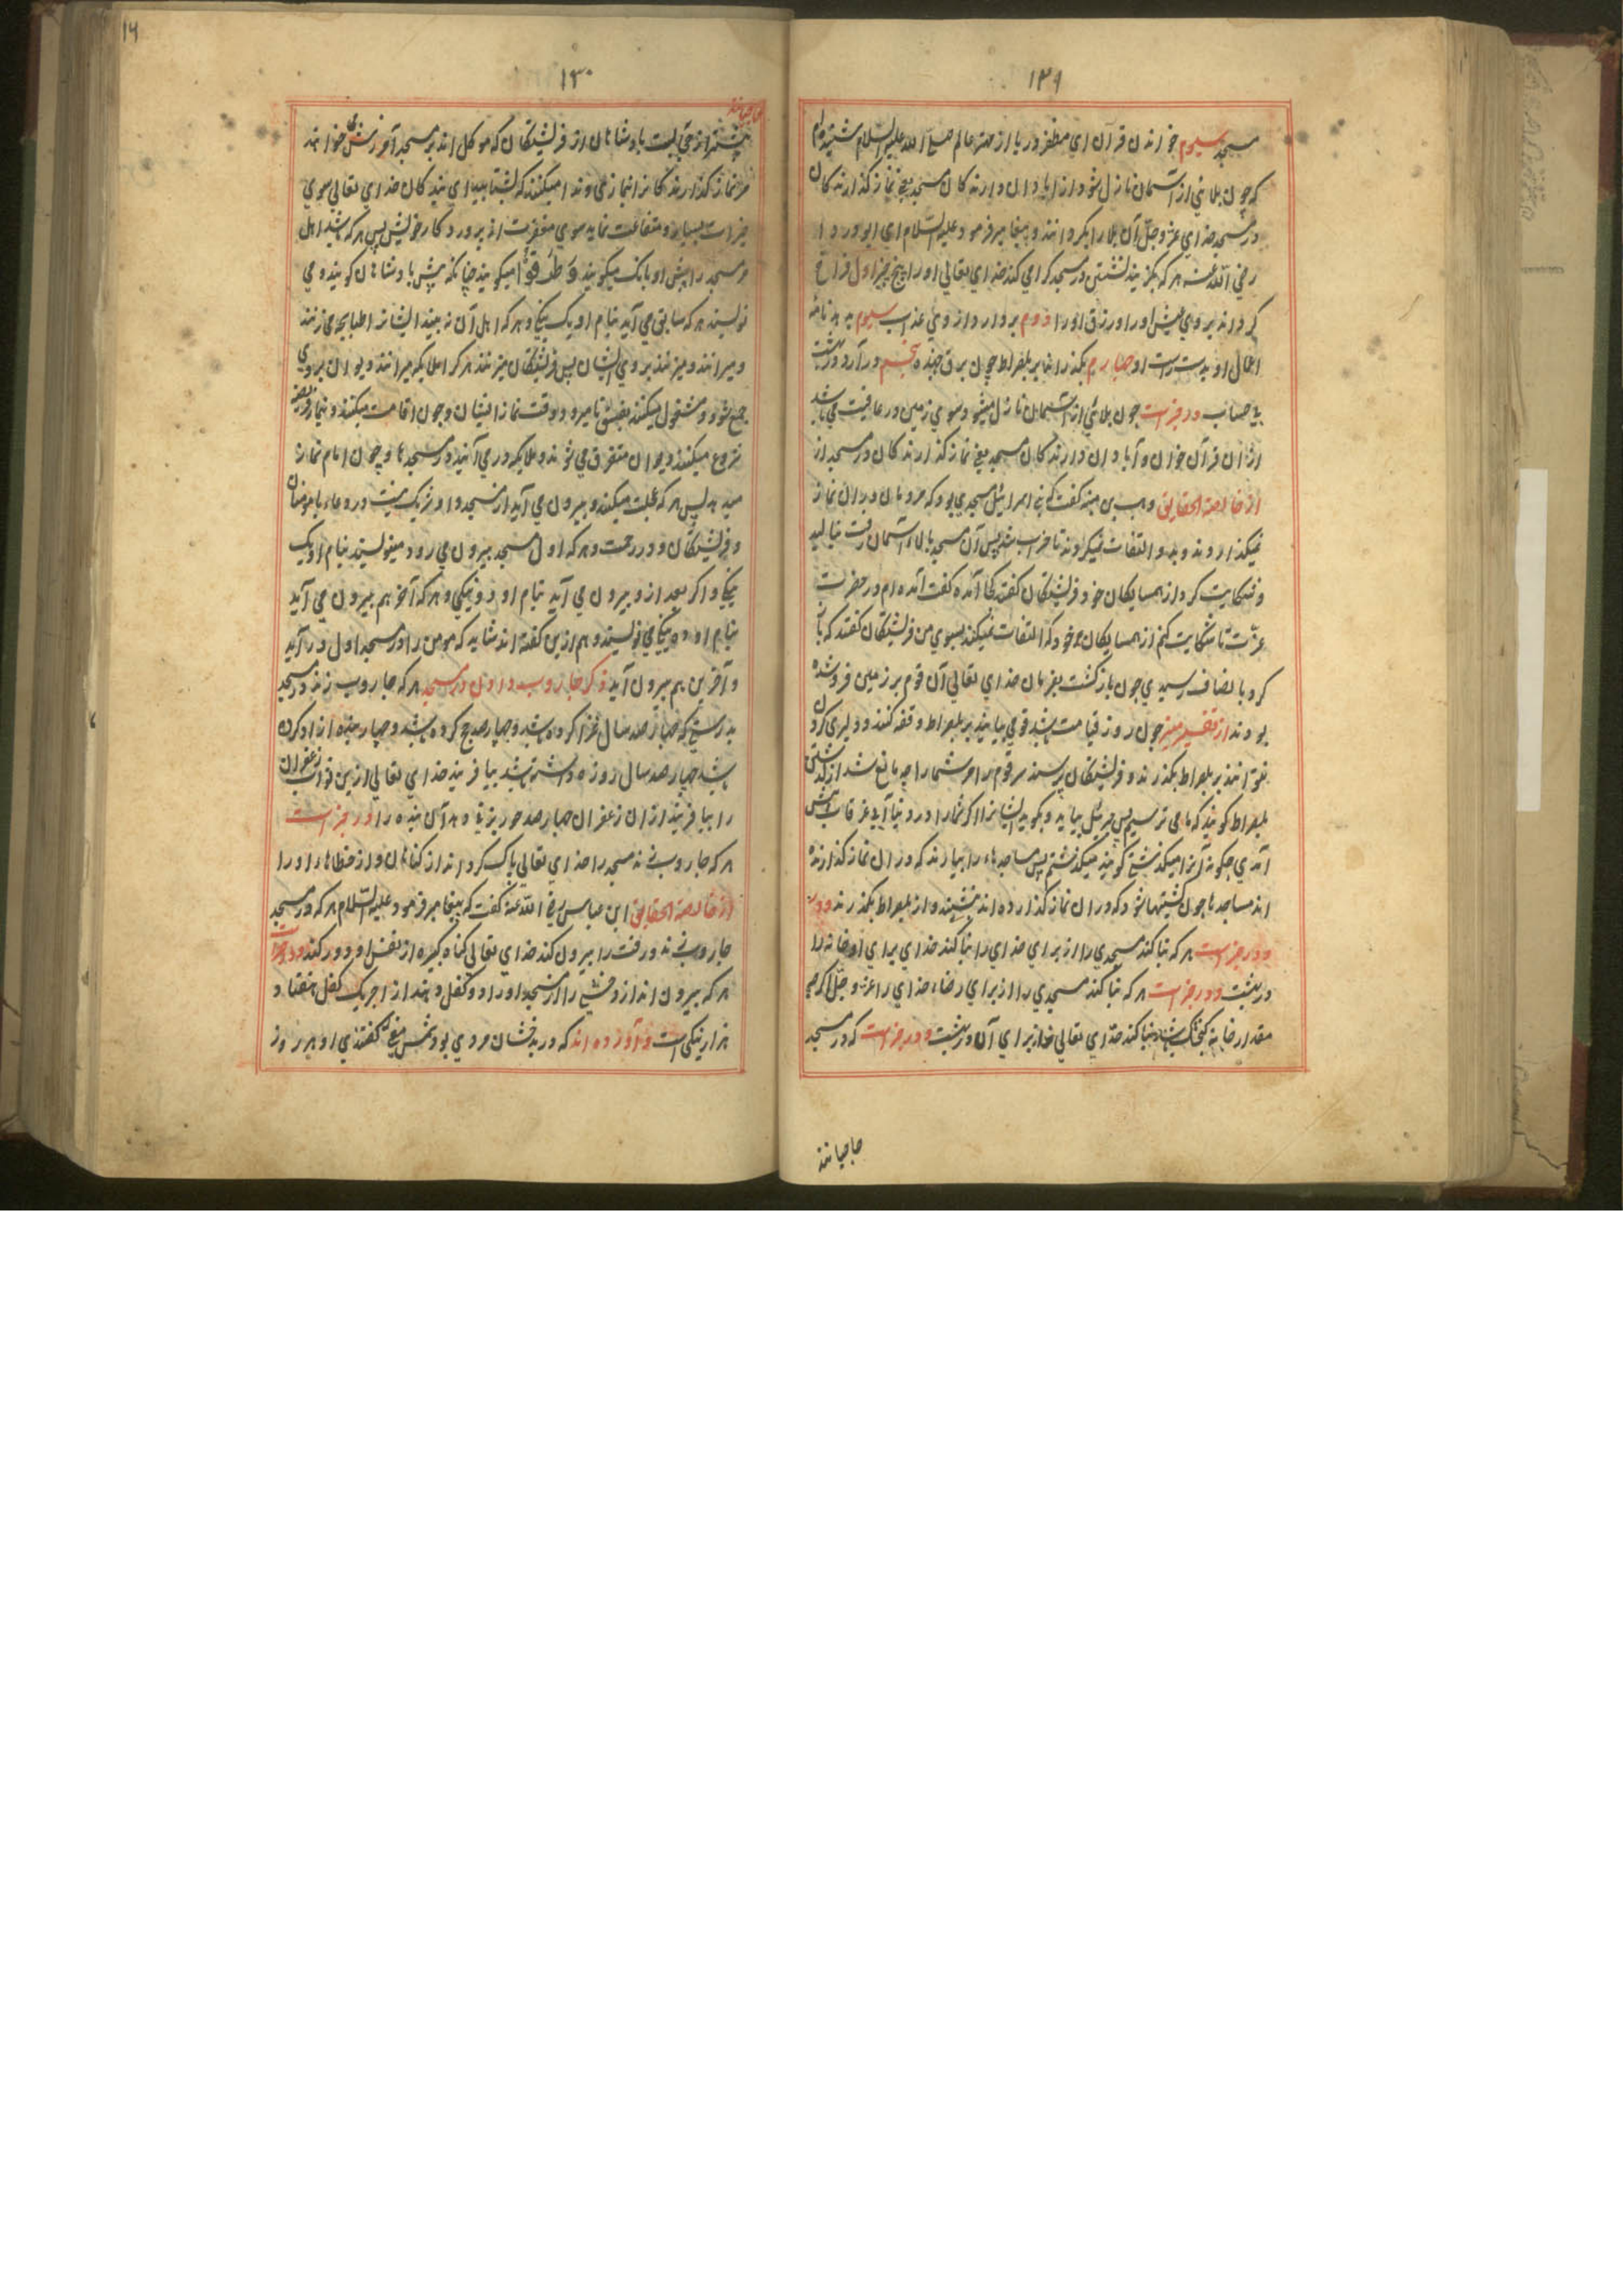 ۱۲۹
مسجد سیوم خواندن قرآن ای مظفر دریا از مهتر عالم صلی الله علیه السلام شنیده‌ام
که چون بلائی از آسمان نازل شود از آبادان دارندکان مسجد یعنی نماز کذارندکان
در مسجد خدای عزوجل آن بلا را بکرداند و پیغامبر فرمود علیه السلام ای ابو دردا
رضی الله عنه هر که بکزیند نشستن در مسجد کرامی کند خدای تعالی او را به پنج چیز اول فراخ
کرداند بر وی عیش او را و رزق او را دوم بردارد از وی عذاب سیوم بدهد نامه
اعمال او بدست راست او چهارم بکذراند بر پلصراط چون برق جهنده پنجم درآرد در بهشت
بی حساب در خبر است چون بلائی از آسمان نازل میشود سوی زمین در عافیت می باشد
ازان قرآن خوان و آبادان دارندکان مسجد یعنی نماز کذارندکان در مسجد از
از خالصة الحقایق وهب بن منبه کفت که بنی اسرائیل مسجدی بود که مردمان دران نماز
نمیکذاردند و بدو التفات نمیکردند تا خراب شد پس آن مسجد بالای آسمان رفت بنالید
و شکایت کرد از همسایکان خود فرشتکان کفتند کجا آمده کفت آمده ام در حضرت
عزت تا شکایت کنم از همسایکان خود که التفات نمیکنند بسوی من فرشتکان کفتند که باز
کرد بانصاف رسیدی چون بازکشت بفرمان خدای تعالی آن قوم بر زمین فرو شده
بودند از تفسیر منیر چون روز قیامت باشد قومی بیایند بر پلصراط وقفه کنند و دلیری کردن
نتوانند بر پلصراط بکذرند و فرشتکان پرسند مر قوم را مر شما را چه مانع شد از کذشتن
پلصراط کویند که ما می ترسیم پس جبرئیل بیاید و بکوید ایشانرا اکر شما را در دنیا آبی غرقاب پیش
آمدی چکونه آنرا میکذشتی کویند میکذشتیم پس مساجدها را بیارند که دران نماز کذارنده
اند مساجدها چون کشتیها شود که دران نماز کذارده اند بنشینند و از پلصراط بکذرند و در
و در خبر است هر که بنا کند مسجدی را از برای خدای را بنا کند خدای برای او خانه را
در بهشت و در خبر است هر که بنا کند مسجدی را از برای رضاء خدای را عز و جل اکرچه
مقدار خانه کنجشک باشد بنا کند خدای تعالی خانه برای آن در بهشت و در خبر است که در مسجد
حاجیانند
۱۶
۱۳۰
حاجیانند
بیشتر از حق بیست پادشاهان از فرشتکان که موکل اند بر مسجد آمرزش خوانند
مر نماز کذارندکانرا نماز می و ندا میکنند که بشتابید ای بندکان خدای تعالی سوی
خیرات بسیار و شفاعت نماید سوی مغفرت از پروردکار خویش پس هر که باشد اهل
مر مسجد را پیش او بانک میکویند و طرقوا میکویند چنانکه پیش پادشاهان کویند و می
نویسند هر که سابق می آید بنام او یک نیکی و هر که اهل آن نه بیند ایشانرا طپانچه می زنند
و میرانند و میزنند بر وی ایشان پس فرشتکان میزنند هر کرا ملائکه میرانند دیوان بر وی
جمع شود و مشغول میکنند بفسق تا میرود وقت نماز ایشان و چون اقامت میکنند و نماز فریضه
شروع میکنند دیوان متفرق می شوند و ملائکه درمی آیند در مسجدها و چون امام نماز
میدهد پس هر که عجلت میکند و بیرون می آید از مسجد و او شریک نیست در دعاء با مومنان
و فرشتکان و در رحمت و هر که اول مسجد بیرون می رود مینویسند بنام او یک
نیکی و اکر بعد ازو بیرون می آید بنام او دو نیکی و هر که آخر هم بیرون می آید
بنام او ده نیکی نویسند و هم ازین کفته اند شاید که مومن را در مسجد اول در آید
و آخرین هم بیرون آید ذکر جاروب دادن در مسجد هر که جاروب زند در مسجد
بدرستی که چهار صد سال غزا کرده باشد و چهار صد حج کرده باشد و چهار صد بنده آزاد کرده
باشد چهار صد سال روزه داشته باشد بیافریند خدای تعالی ازین ثواب زعفران
را بیافریند ازان زعفران چهار صد حور بزیاده دهد آن بنده را و در خبر است
هر که جاروب زند مسجد را خدای تعالی پاک کرداند از کناهان و از خطاها او را
از خالصة الحقایق ابن عباس رضی الله عنه کفت که پیغامبر فرمود علیه السلام هر که در مسجد
جاروب زند و رفت را بیرون کند خدای تعالی کناه کبیره از نفس او دور کند و در خبر است
هر که بیرون اندازد خشی را از مسجد او را دو کفل دهند از اجر یک کفل هفتاد
هزار نیکی است و آورده اند که در بدخشان مردی بود شمس میغ کفتندی او هر روز